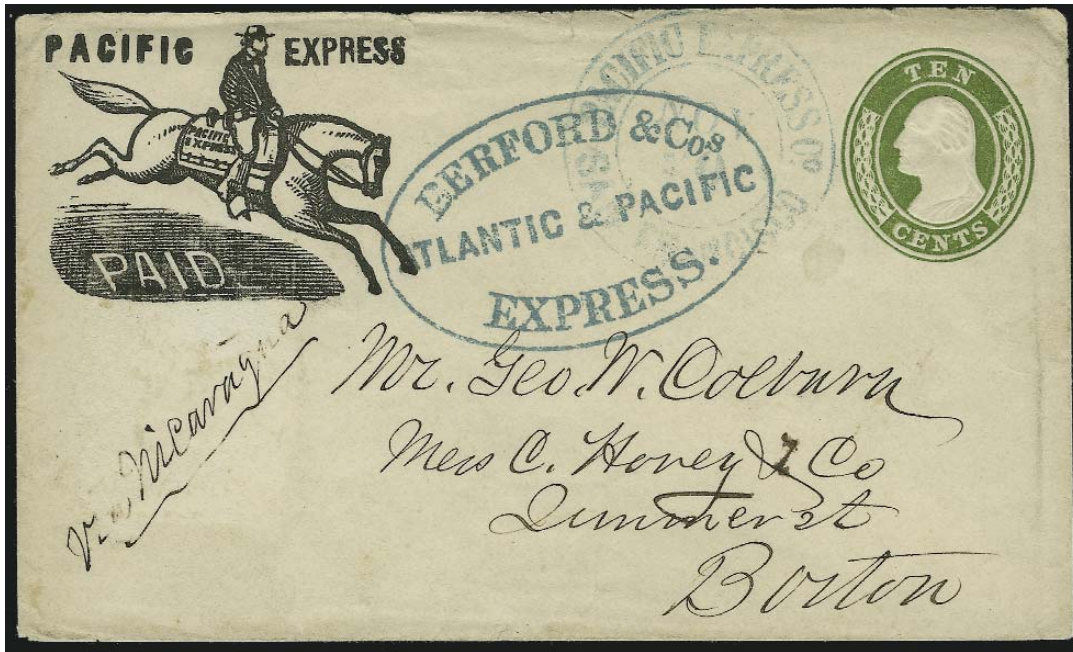 PACIFIC EXPRESS
PACIFIC
EXPRESS
PAID
BERFORD & Cos.
ATLANTIC & PACIFIC
EXPRESS.
PACIFIC EXPRESS Co
NOV
SAN FRANCISCO
TEN
CENTS
Via Nicaragua
Mr. Geo. W. Colburn
Mess C. Hovey & Co
Summer st
Boston